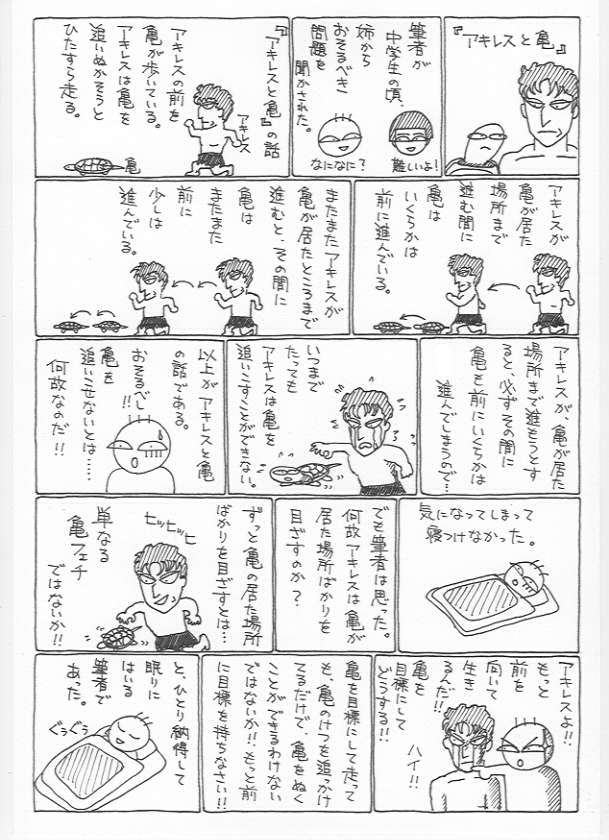 『アキレスと亀』
筆者が
中学生の頃、
姉から
おそるべき
問題を
聞かされた。
難しいよ!
なになに?
『アキレスと亀』の話
アキレス
アキレスの前を
亀が歩いている。
アキレスは亀を
追いぬかそうと
ひたすら走る。
亀
アキレスが
亀が居た
場所まで
進む間に
亀は
いくらかは
前に進んでいる。
またまたアキレスが
亀が居たところまで
進むと、その間に
亀は
またまた
前に
少しは
進んでいる。
アキレスが、亀が居た
場所まで進もうとす
ると、必ずその間に
亀も前にいくらかは
進んでしまうので…
いつまで
たっても
アキレスは亀を
追いこすことができない。
以上がアキレスと亀
の話である。
おそるべし!!
亀を
追いこせないとは……
何故なのだ!!
気になってしまって
寝つけなかった。
でも筆者は思った。
何故アキレスは亀が
居た場所ばかりを
目ざすのか?
ずっと亀の居た場所
ばかりを目ざすとは…
ヒッヒッヒ
単なる
亀フェチ
ではないか!!
アキレスよ!!
もっと
前を
向いて
生き
るんだ!!
亀を
目標にして
どうする!!
ハイ!!
亀を目標にして走って
も、亀のけつを追っかけ
てるだけで、亀をぬく
ことができるわけない
ではないか!!もっと前
に目標を持ちなさい!!
と、ひとり納得して
眠りに
はいる
筆者で
あった。
ぐうぐう